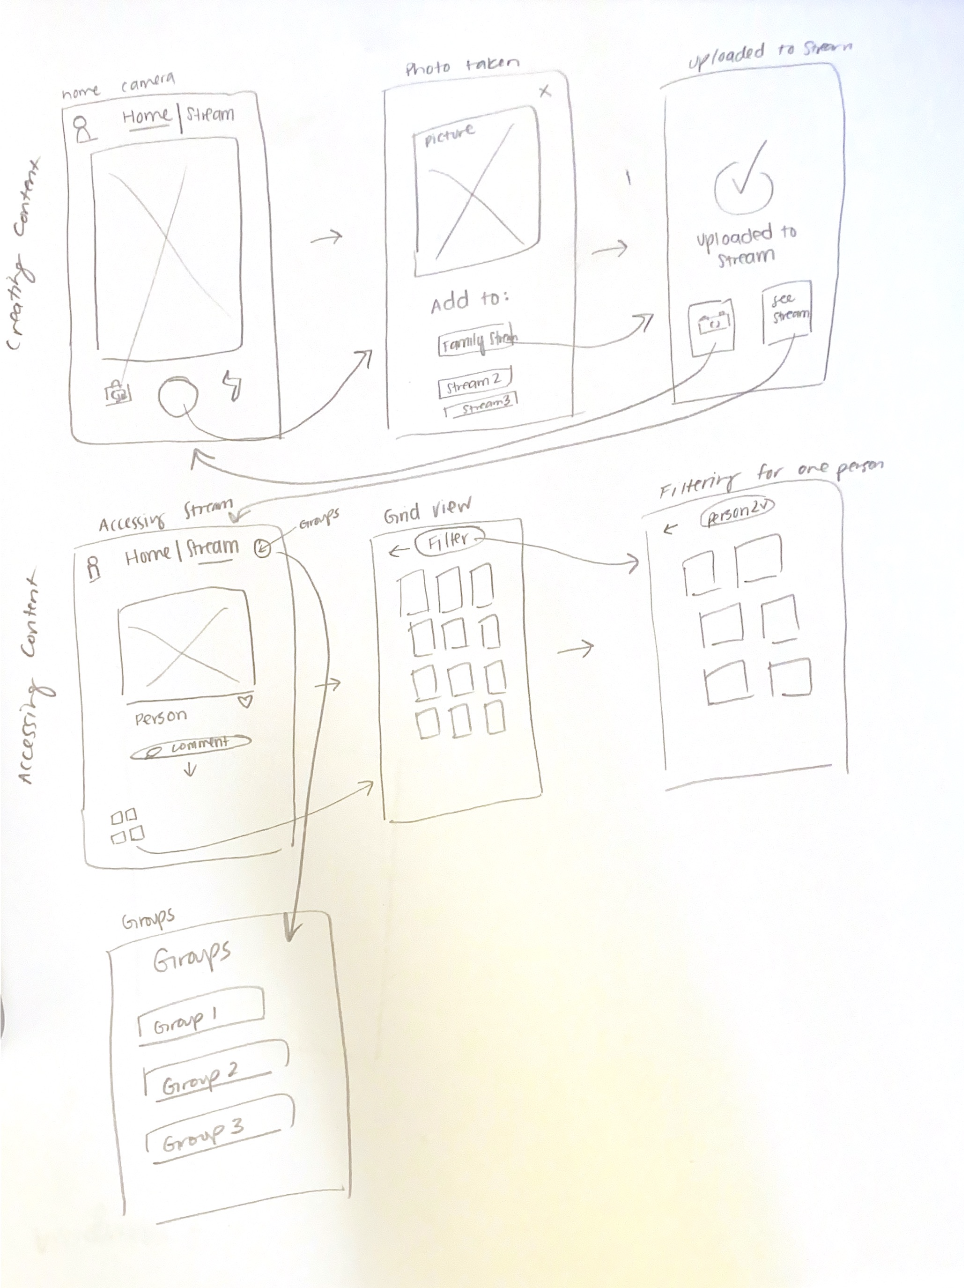 Creating Content
home camera
Home | Stream
Photo taken
x
picture
Add to:
Family Stream
Stream 2
Stream 3
Uploaded to Stream
Uploaded to
Stream
See
Stream
Accessing Content
Accessing Stream
Groups
Home | Stream
Person
comment
Grid view
Filter
Filtering for one person
person 2
Groups
Groups
Group 1
Group 2
Group 3